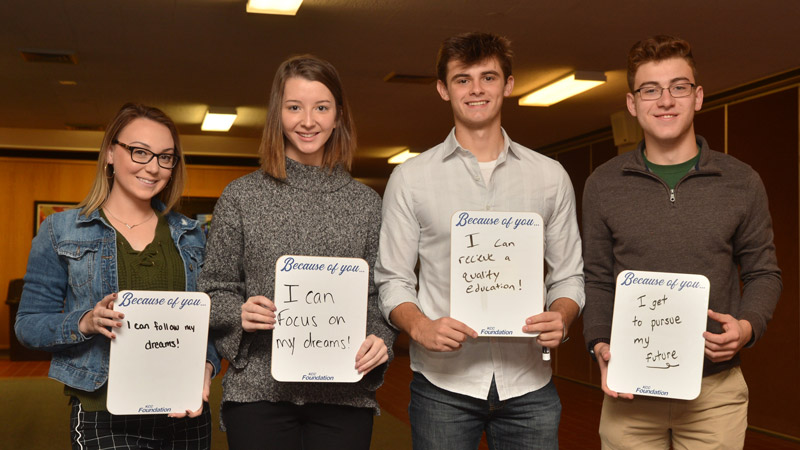 Because of you...
I can follow my
dreams!
ACC
Foundation
Because of you...
I can
Focus on
my dreams!
ACC
Foundation
Because of you...
I can
recieve a
quality
education!
ACC
Foundation
Because of you...
I get
to pursue
my
future
ACC
Foundation